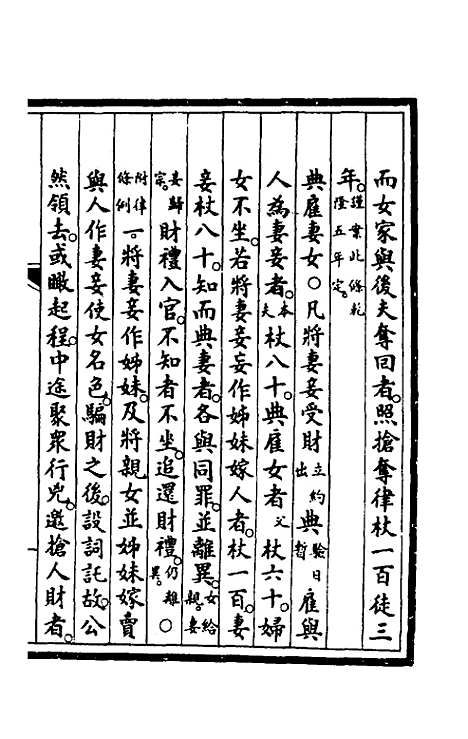 而女家與後夫奪回者。照搶奪律杖一百徒三
年。謹案此條乾隆五年定。
典雇妻女〇凡將妻妾受財立約出典驗日暫雇與
人為妻妾者。本夫杖八十。典雇女者父杖六十。婦
女不坐。若將妻妾妄作姊妹嫁人者。杖一百。妻
妾杖八十。知而典妻者。各與同罪。並離異。女給親。妻
妾歸宗。財禮入官。不知者不坐。追還財禮。仍離異。〇
附律條例一。將妻妾作姊妹。及將親女並姊妹嫁賣
與人作妻妾使女名色。騙財之後。設詞託故。公
然領去。或瞰起程。中途聚眾行兇。邀搶人財者。